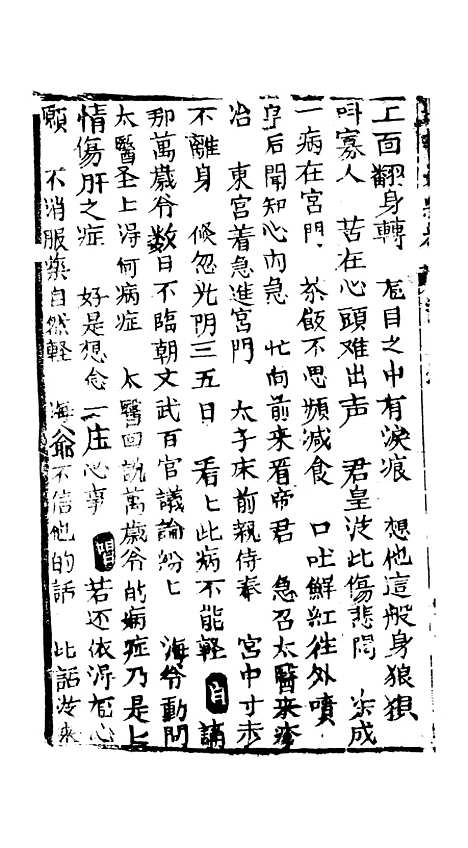 上面翻身轉　龙目之中有淚痕　想他這般身狼狽
呌寡人　苦在心頭难出声　君皇为此傷悲悶　染成
一病在宮門　茶飯不思頻減食　口吐鮮紅往外噴
后聞知心內急　忙向前来看帝君　急召太醫来疹
治　東宮着急進宮門　太子床前親侍奉　宮中寸步
不離身　倏忽光阴三五日　看匕此病不能輕　白　誦
那萬歲爷数日不臨朝文武百官議論紛匕　海爷動問
太醫圣上得何病症　太醫回說萬歲爷的病症乃是七
情傷肝之症　好是想念一庄心事　唱　若还依得龙心
願　不消服藥自然軽　海爺不信他的話　此話從来